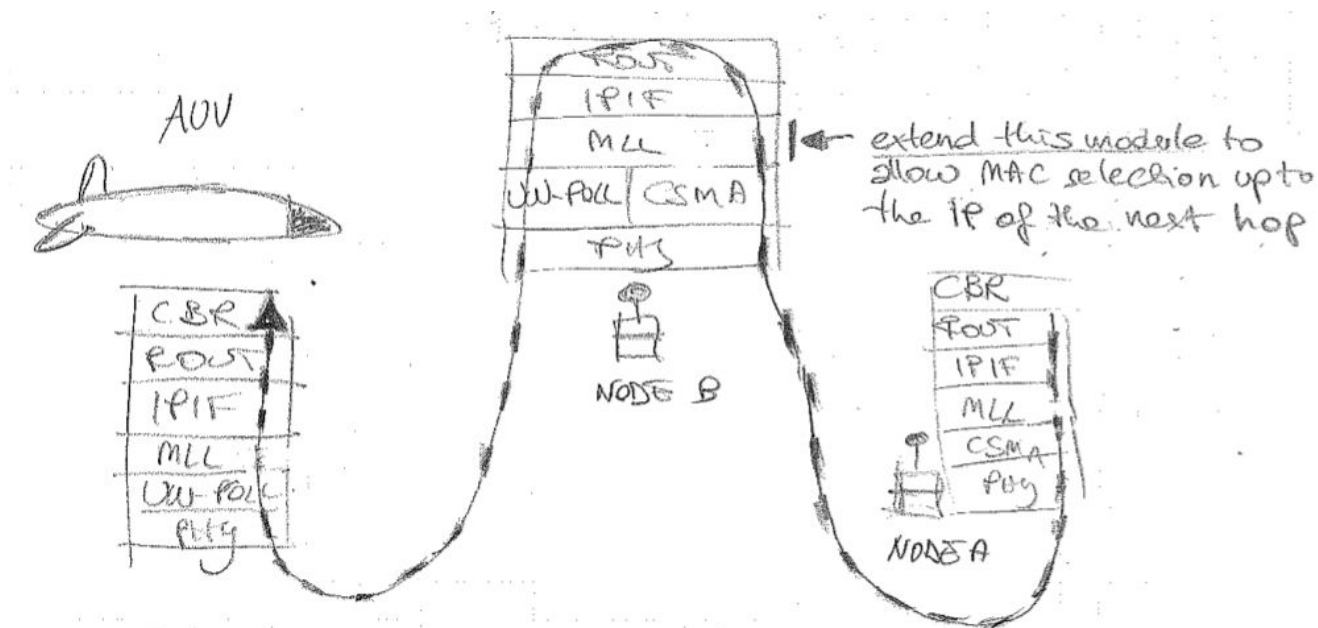 AUV
CBR
ROUT
IPIF
MLL
UW-POLL
PHY
ROUT
IPIF
MLL
UW-POLL CSMA
PHY
NODE B
extend this module to
allow MAC selection up to
the IP of the next hop
CBR
ROUT
IPIF
MLL
CSMA
PHY
NODE A